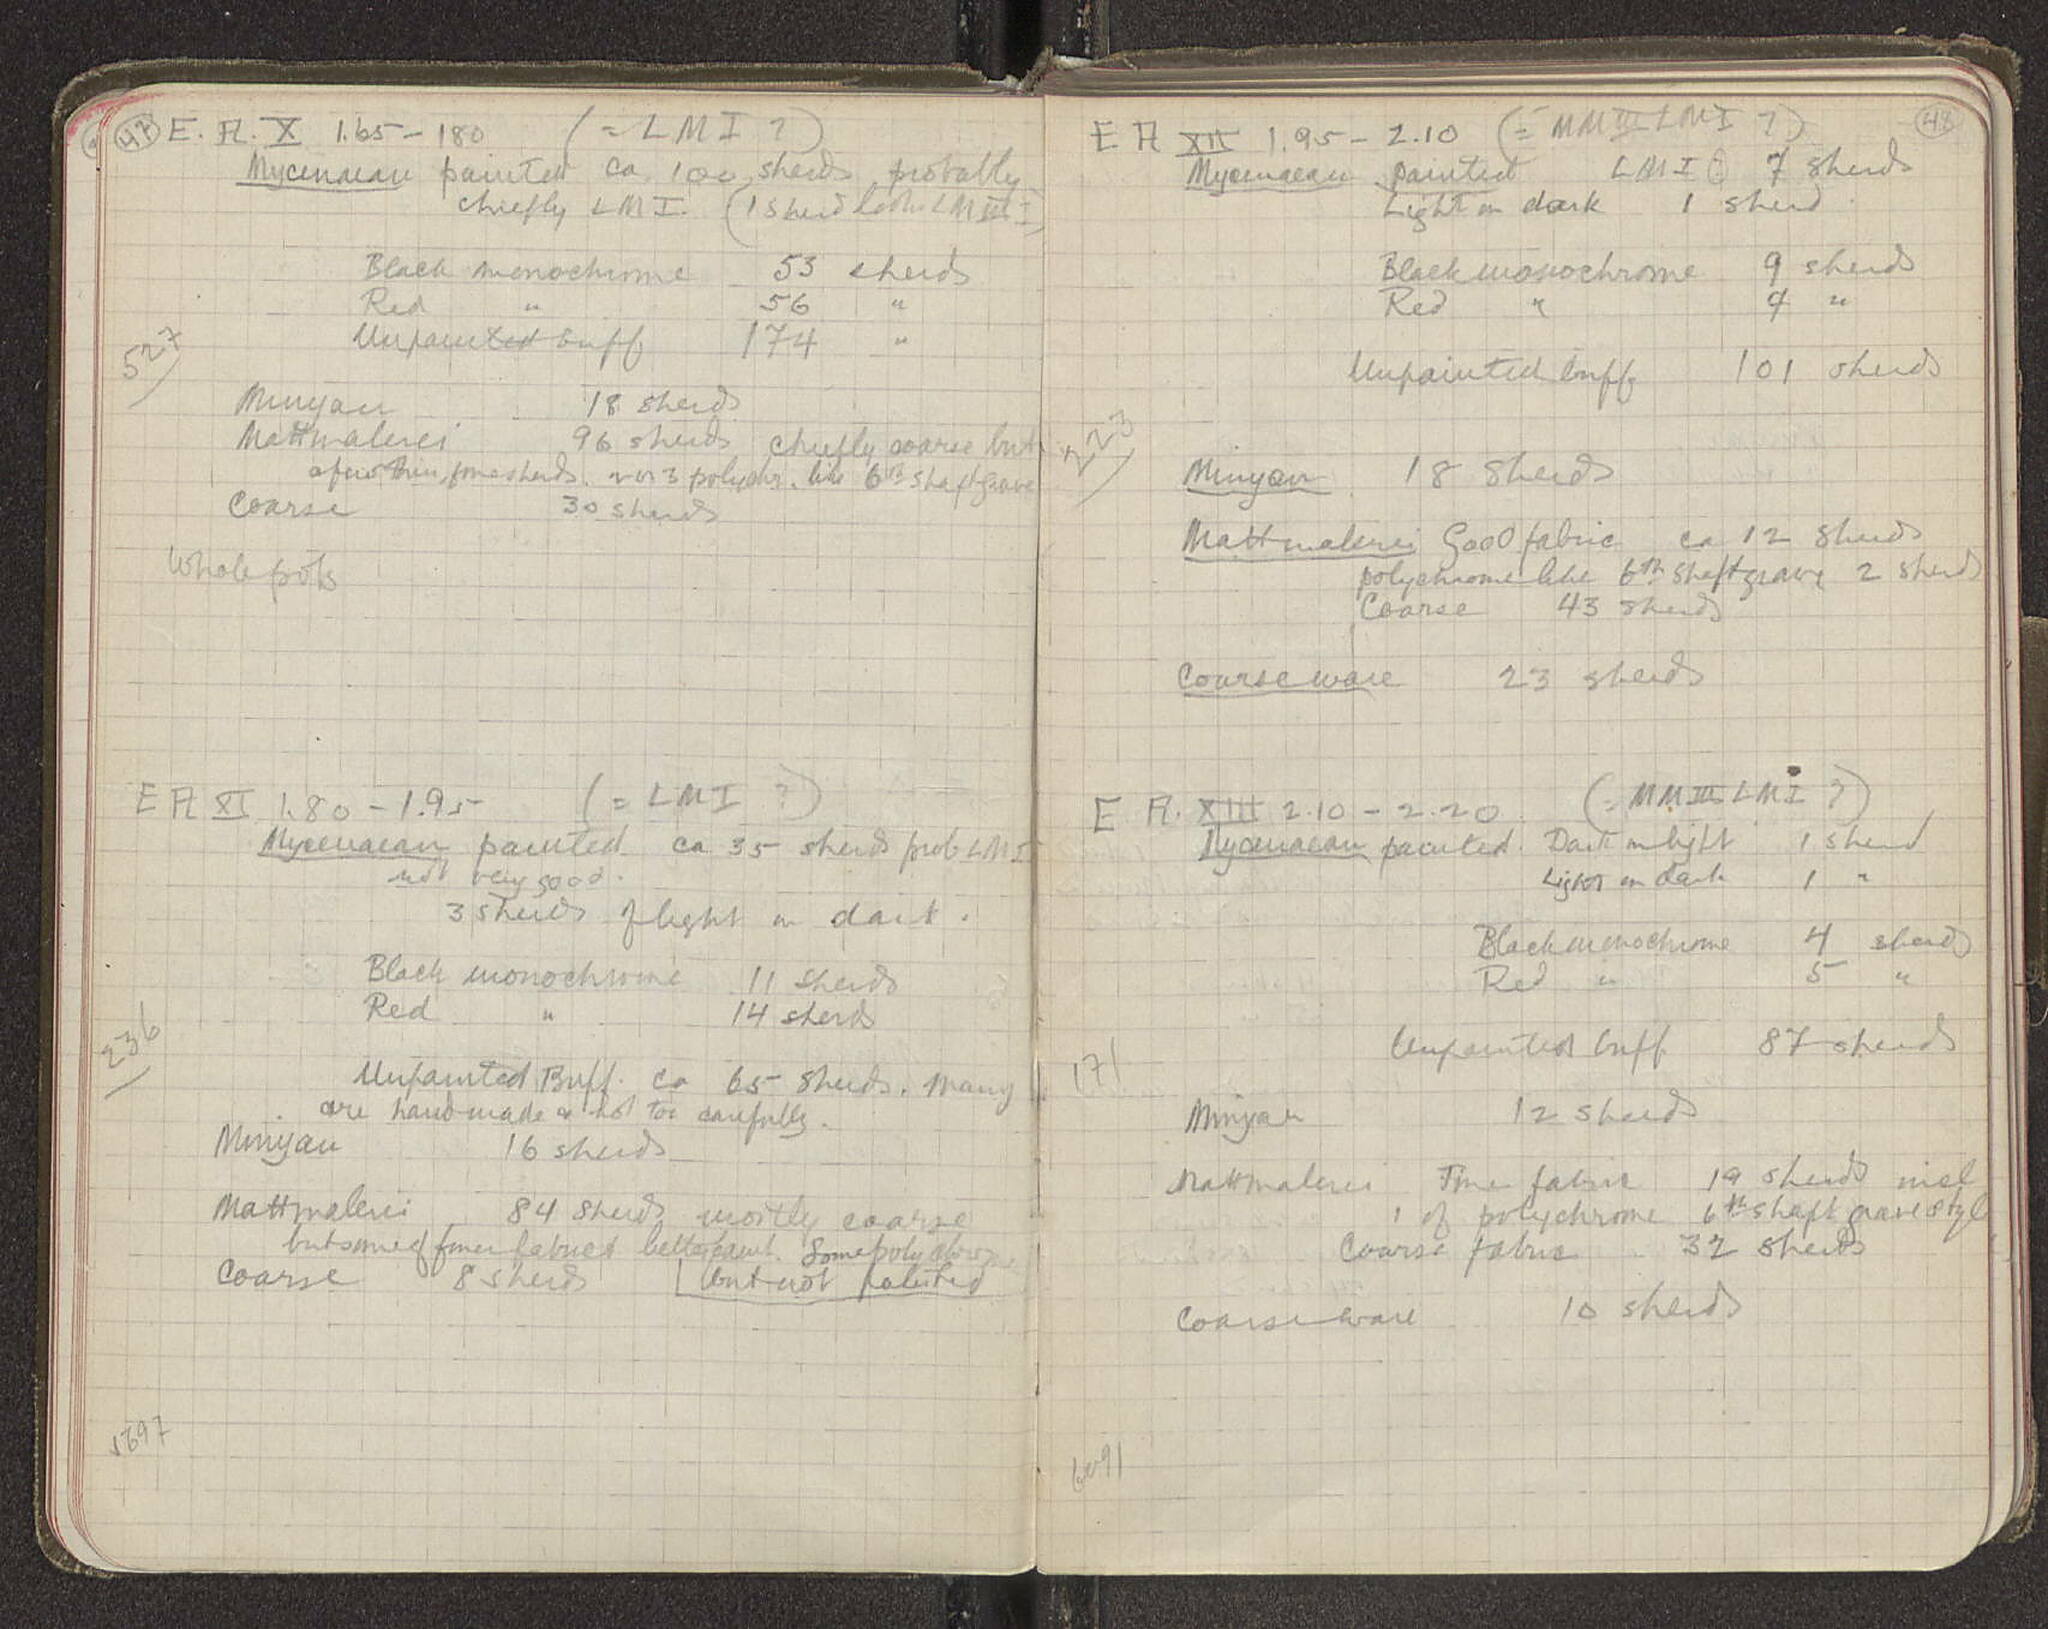 47 E. A. X 1.65 – 180 (= LMI ?)
Mycenaean painted ca 100 sherds probably
chiefly LMI. (1 sherd looks LM III)
Black monochrome 53 sherds
Red " 56 "
Unpainted buff 174 "
527
Minyan 18 sherds
Mattmalerei 96 sherds chiefly coarse but
a few thin, fine sherds. 2 or 3 polychr. like 6th shaft grave
Coarse 30 sherds
Whole pots
E A XI 1.80 – 1.95 (= LMI ?)
Mycenaean painted ca 35 sherds prob LMI
not very good.
3 sherds of light on dark.
Black monochrome 11 sherds
Red " 14 sherds
236
Unpainted Buff. ca 65 sherds. Many
are handmade & not too carefully.
Minyan 16 sherds
Mattmalerei 84 sherds mostly coarse
but some of finer fabric & better paint. Some polychrome
Coarse 8 sherds but not polished
5697
48
E A XII 1.95 – 2.10 (= MMIII LMI ?)
Mycenaean painted LMI ? 7 sherds
Light on dark 1 sherd.
Black monochrome 9 sherds
Red " 9 "
Unpainted buff 101 sherds
223
Minyan 18 sherds
Mattmalerei Good fabric ca 12 sherds
polychrome like 6th shaft grave 2 sherds
Coarse 43 sherds
Coarse ware 23 sherds
E A. XIII 2.10 – 2.20 (= MMIII LMI ?)
Mycenaean painted. Dark on light 1 sherd
Light on dark 1 "
Black monochrome 4 sherds
Red " 5 "
Unpainted buff 87 sherds
171
Minyan 12 sherds
Mattmalerei Fine fabric 19 sherds incl
1 of polychrome 6th shaft grave style
Coarse fabric 32 sherds
Coarse ware 10 sherds
6091